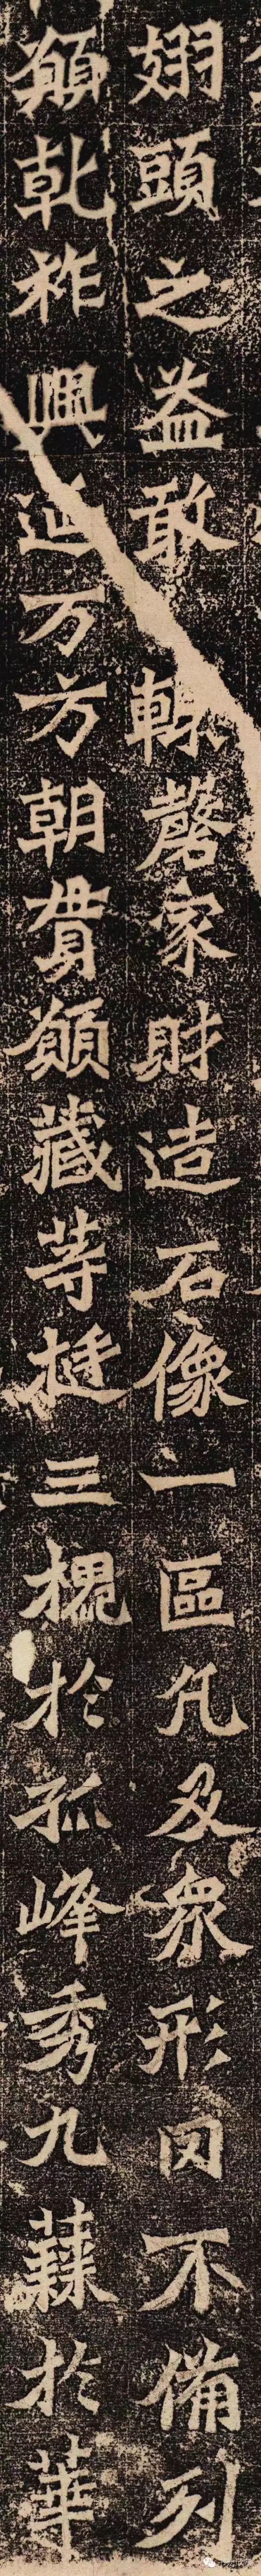 翅頭之益敢輒磬家財造石像一區凡及衆形罔不備列
願乾祚興延万方朝貫願藏等挺三槐於孤峰秀九蕀於華